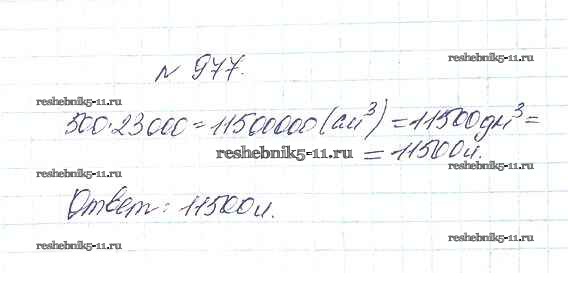 № 977.
reshebnik5-11.ru
reshebnik5-11.ru
500·23000=11500000(см³)=11500дм³=
reshebnik5-11.ru
=11500л.
reshebnik5-11.ru
reshebnik5-11.ru
Ответ: 11500л.
reshebnik5-11.ru
reshebnik5-11.ru